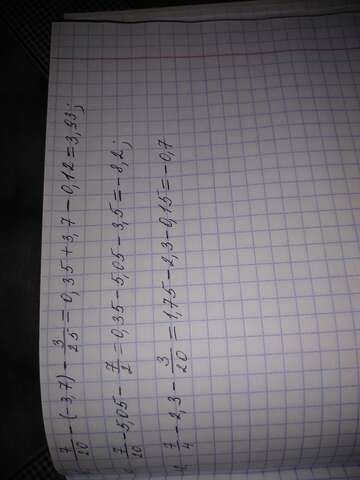 7/20 - (-3,7) - 3/25 = 0,35 + 3,7 - 0,12 = 3,93;
7/20 - 5,05 - 7/2 = 0,35 - 5,05 - 3,5 = -8,2;
7/4 - 2,3 - 3/20 = 1,75 - 2,3 - 0,15 = -0,7